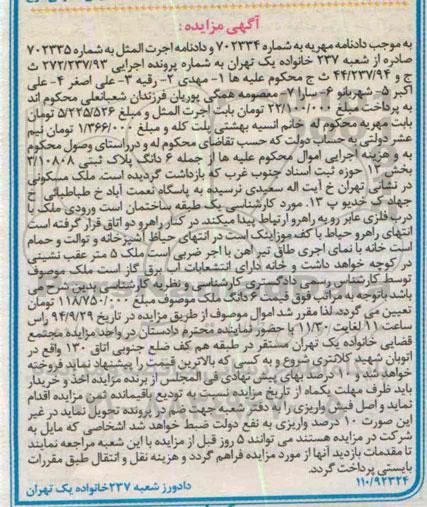 آگهی مزایده:
به موجب دادنامه مهریه به شماره ۷۰۲۳۳۴ و دادنامه اجرت المثل به شماره ۷۰۲۳۳۵
صادره از شعبه ۲۳۷ خانواده یک تهران به شماره پرونده اجرایی ۲۷۲/۲۳۷/۹۳ ث
ج و ۴۴/۲۳۷/۹۴ ث ج محکوم علیه ها ۱- مهدی ۲- رقیه ۳- علی اصغر ۴- علی
اکبر ۵- شهربانو ۶- سارا ۷- معصومه همگی پوریان فرزندان شعبانعلی محکوم اند
به پرداخت مبلغ ۲۲/۱۰۰/۰۰۰ تومان بابت اجرت المثل و مبلغ ۵/۲۲۵/۵۲۶ تومان
بابت مهریه محکوم له خانم انسیه بهشتی پلت کله و مبلغ ۱/۳۶۶/۰۰۰ تومان نیم
عشر دولتی به حساب دولت که حسب تقاضای محکوم له و درراستای وصول محکوم
به و هزینه اجرایی اموال محکوم علیه ها از جمله ۶ دانگ پلاک ثبتی ۳/۱۰۸۰۸
بخش ۱۲ حوزه ثبت اسناد جنوب غرب که بازداشت گردیده است. ملک مسکونی
در نشانی تهران خ آیت اله سعیدی نرسیده به پاسگاه نعمت آباد خ طباطبائی خ
جهاد ک خدیو پ ۱۳. مورد کارشناسی یک طبقه ساختمان است ورودی ملک با
درب فلزی عابر رو به راهرو ارتباط پیدا میکند. در کنار راهرو دو اتاق قرار گرفته است
انتهای راهرو حیاط با کف موزاییک است در انتهای حیاط آشپزخانه و توالت و حمام
است خانه با نمای اجری طاق تیر آهن با آجر ضربی است ملک ۵ متر عقب نشینی
در کوچه خواهد داشت و خانه دارای انشعابات آب برق گاز است ملک موصوف
توسط کارشناس رسمی دادگستری کارشناسی و نظریه کارشناسی بدین شرح می
باشد باتوجه به مراتب فوق قیمت ۶ دانگ ملک موصوف مبلغ ۱۱۸۷۵۰/۰۰۰ تومان
تعیین می گردد. لذا مقرر شد اموال موصوف از طریق مزایده در تاریخ ۹۴/۹/۲۹ راس
ساعت ۱۱ لغایت ۱۱/۳۰ با حضور نماینده محترم دادستان در واحد مزایده مجتمع
قضایی خانواده یک تهران مستقر در طبقه هم کف ضلع جنوبی اتاق ۱۳۰ واقع در
اتوبان شهید کلانتری شروع و به کسی که بالاترین قیمت را پیشنهاد نماید فروخته
خواهد شد. ۱۰ درصد بهای پیش نهادی فی المجلس از برنده مزایده اخذ و خریدار
باید ظرف مهلت یکماه از تاریخ مزایده نسبت به تودیع باقیمانده ثمن مزایده اقدام
نماید و اصل فیش واریزی را به دفتر شعبه جهت ضم در پرونده تحویل نماید در غیر
این صورت ۱۰ درصد واریزی به نفع دولت ضبط خواهد شد اشخاصی که مایل به
شرکت در مزایده هستند می توانند ۵ روز قبل از مزایده با این شعبه مراجعه نمایند
تا مقدمات بازدید آنها از مورد مزایده فراهم گردد و هزینه نقل و انتقال طبق مقررات
بایستی پرداخت گردد.
۱۱۰/۹۲۳۲۴ دادورز شعبه ۲۳۷خانواده یک تهران